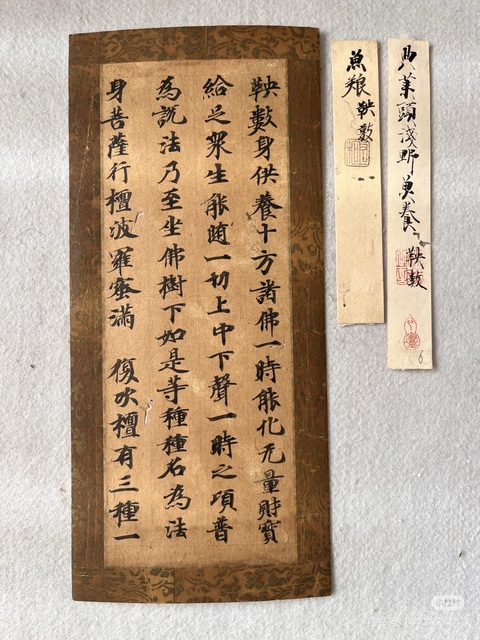 典薬頭淺野魚養 鞅數
魚粮 鞅數
鞅數身供養十方諸佛一時能化无量財寶
給足衆生能随一切上中下聲一時之項普
為説法乃至坐佛樹下如是等種種名為法
身菩薩行檀波羅蜜滿 復次檀有三種一